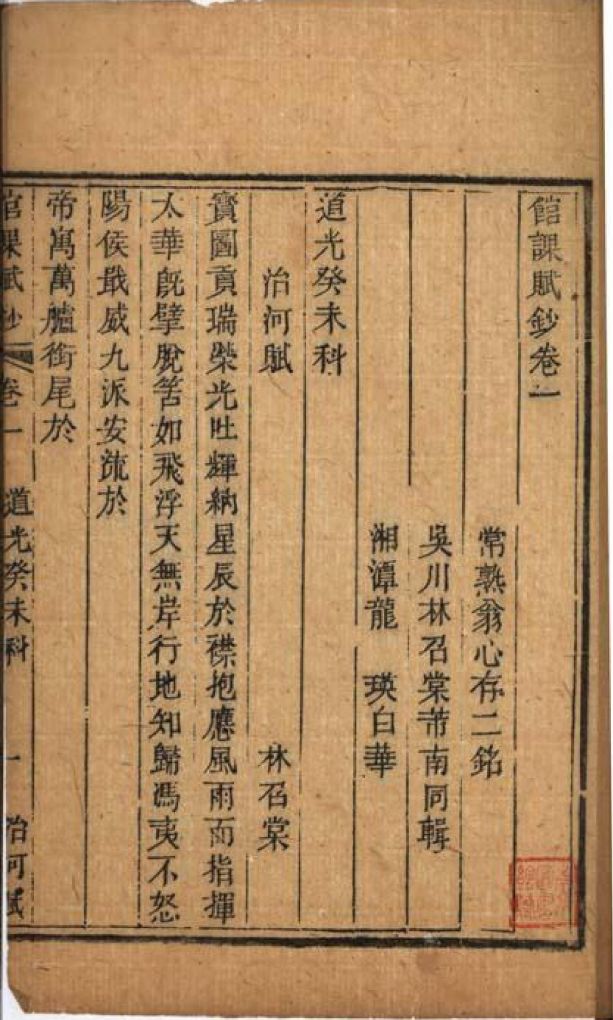 館課賦鈔卷一
常熟翁心存二銘
吳川林召棠芾南同輯
湘潭龍　瑛白華
道光癸未科
治河賦　林召棠
寶圖貢瑞榮光吐輝納星辰於襟抱應風雨而指揮
太華既擘脫筈如飛浮天無岸行地知歸馮夷不怒
陽侯戢威九派安流於
帝寓萬艫銜尾於
館課賦鈔　卷一　道光癸未科　一　治河賦